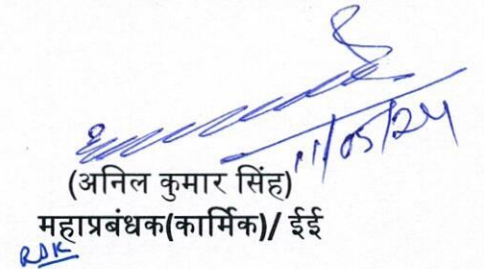 11/05/24
(अनिल कुमार सिंह)
महाप्रबंधक(कार्मिक)/ ईई
RDK